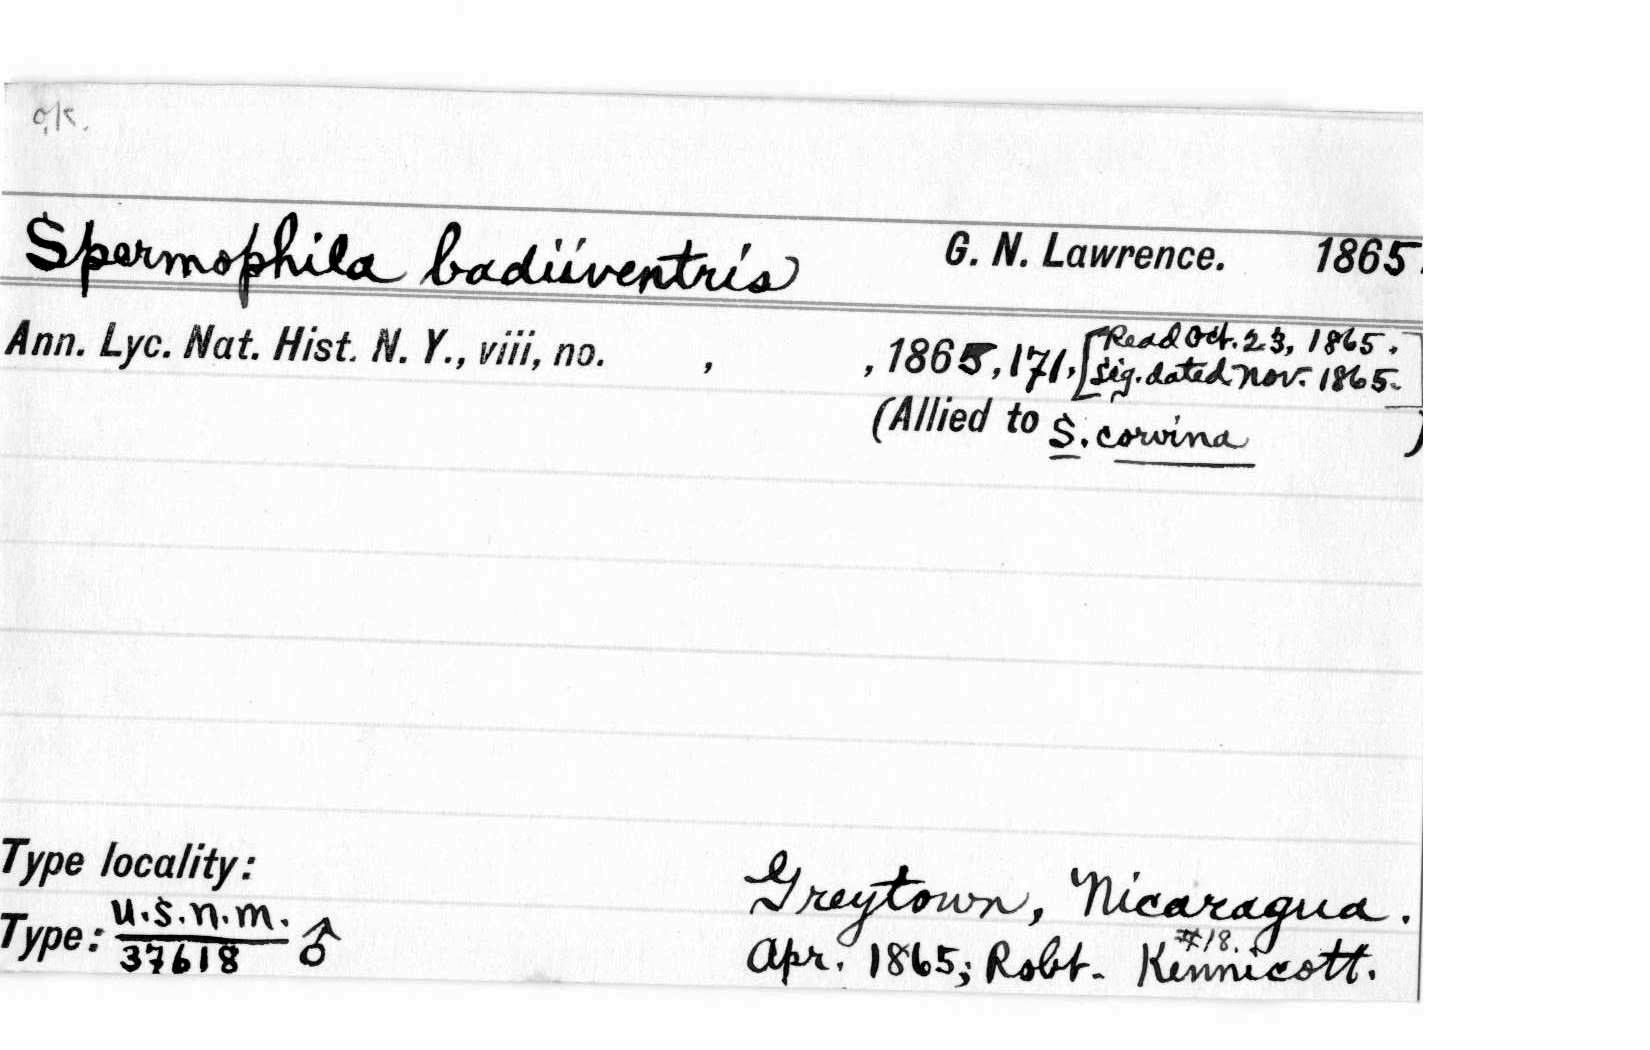 o.k.
Spermophila badiiventris G. N. Lawrence. 1865.
Ann. Lyc. Nat. Hist. N. Y., viii, no. , , 1865, 171, [Read Oct. 23, 1865.
Sig. dated Nov. 1865.]
(Allied to S. corvina )
Type locality: Greytown, Nicaragua.
Type: U.S.N.M. 37618 ♂ Apr. 1865; Robt. Kennicott. #18.